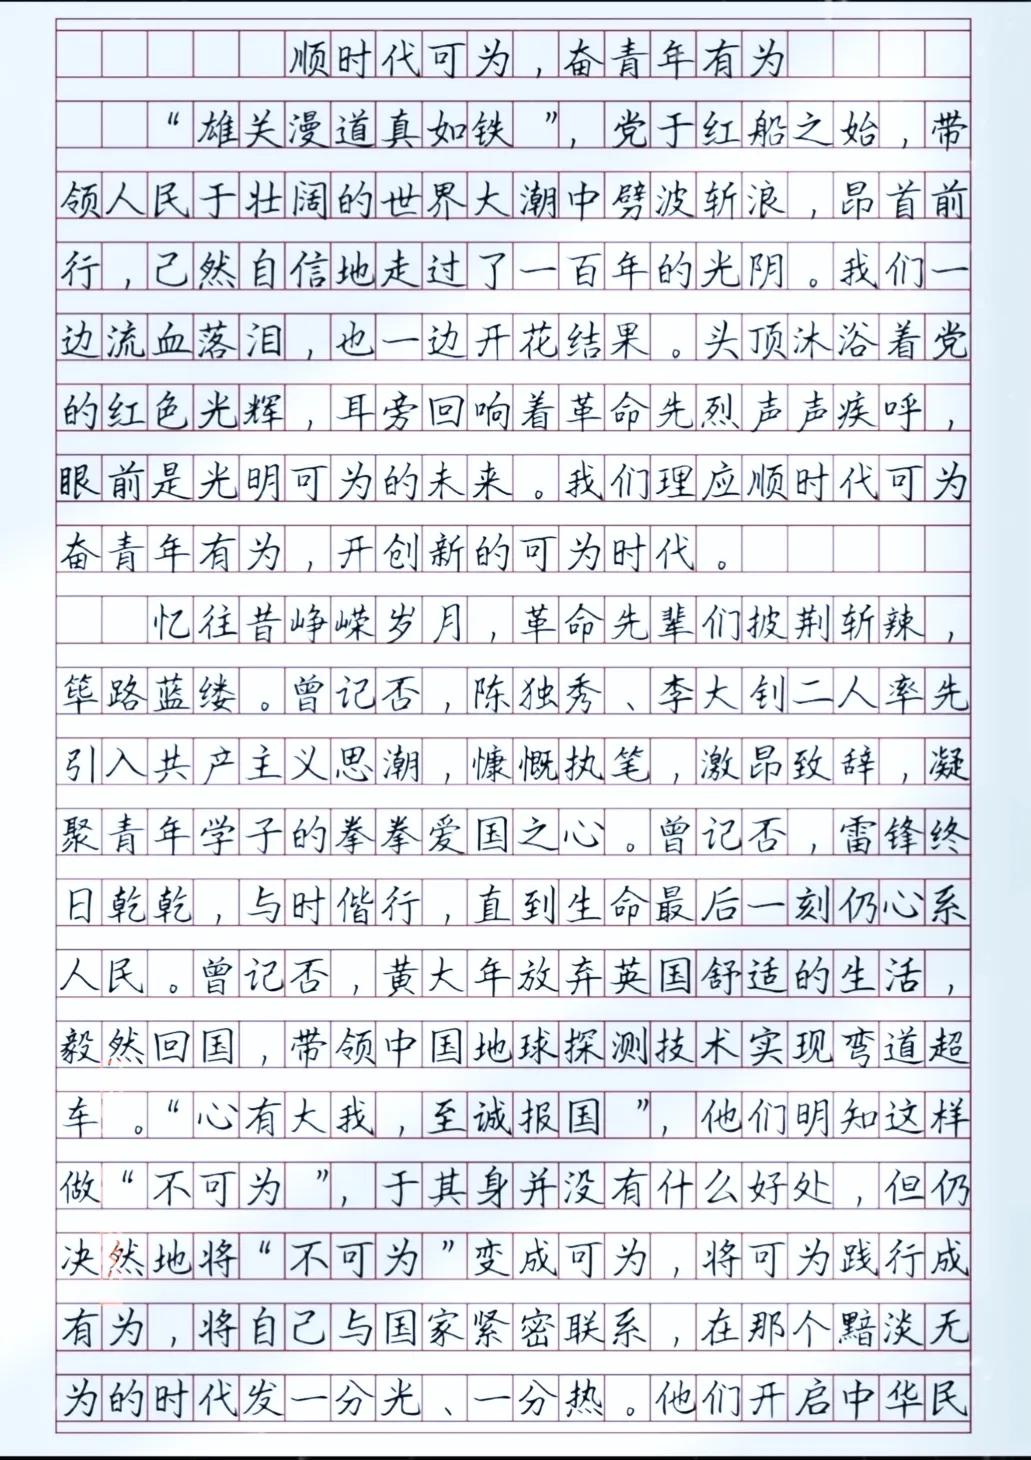 顺时代可为，奋青年有为
“雄关漫道真如铁”，党于红船之始，带
领人民于壮阔的世界大潮中劈波斩浪，昂首前
行，己然自信地走过了一百年的光阴。我们一
边流血落泪，也一边开花结果。头顶沐浴着党
的红色光辉，耳旁回响着革命先烈声声疾呼，
眼前是光明可为的未来。我们理应顺时代可为
奋青年有为，开创新的可为时代。
忆往昔峥嵘岁月，革命先辈们披荆斩辣，
筚路蓝缕。曾记否，陈独秀、李大钊二人率先
引入共产主义思潮，慷慨执笔，激昂致辞，凝
聚青年学子的拳拳爱国之心。曾记否，雷锋终
日乾乾，与时偕行，直到生命最后一刻仍心系
人民。曾记否，黄大年放弃英国舒适的生活，
毅然回国，带领中国地球探测技术实现弯道超
车。“心有大我，至诚报国”，他们明知这样
做“不可为”，于其身并没有什么好处，但仍
决然地将“不可为”变成可为，将可为践行成
有为，将自己与国家紧密联系，在那个黯淡无
为的时代发一分光、一分热。他们开启中华民